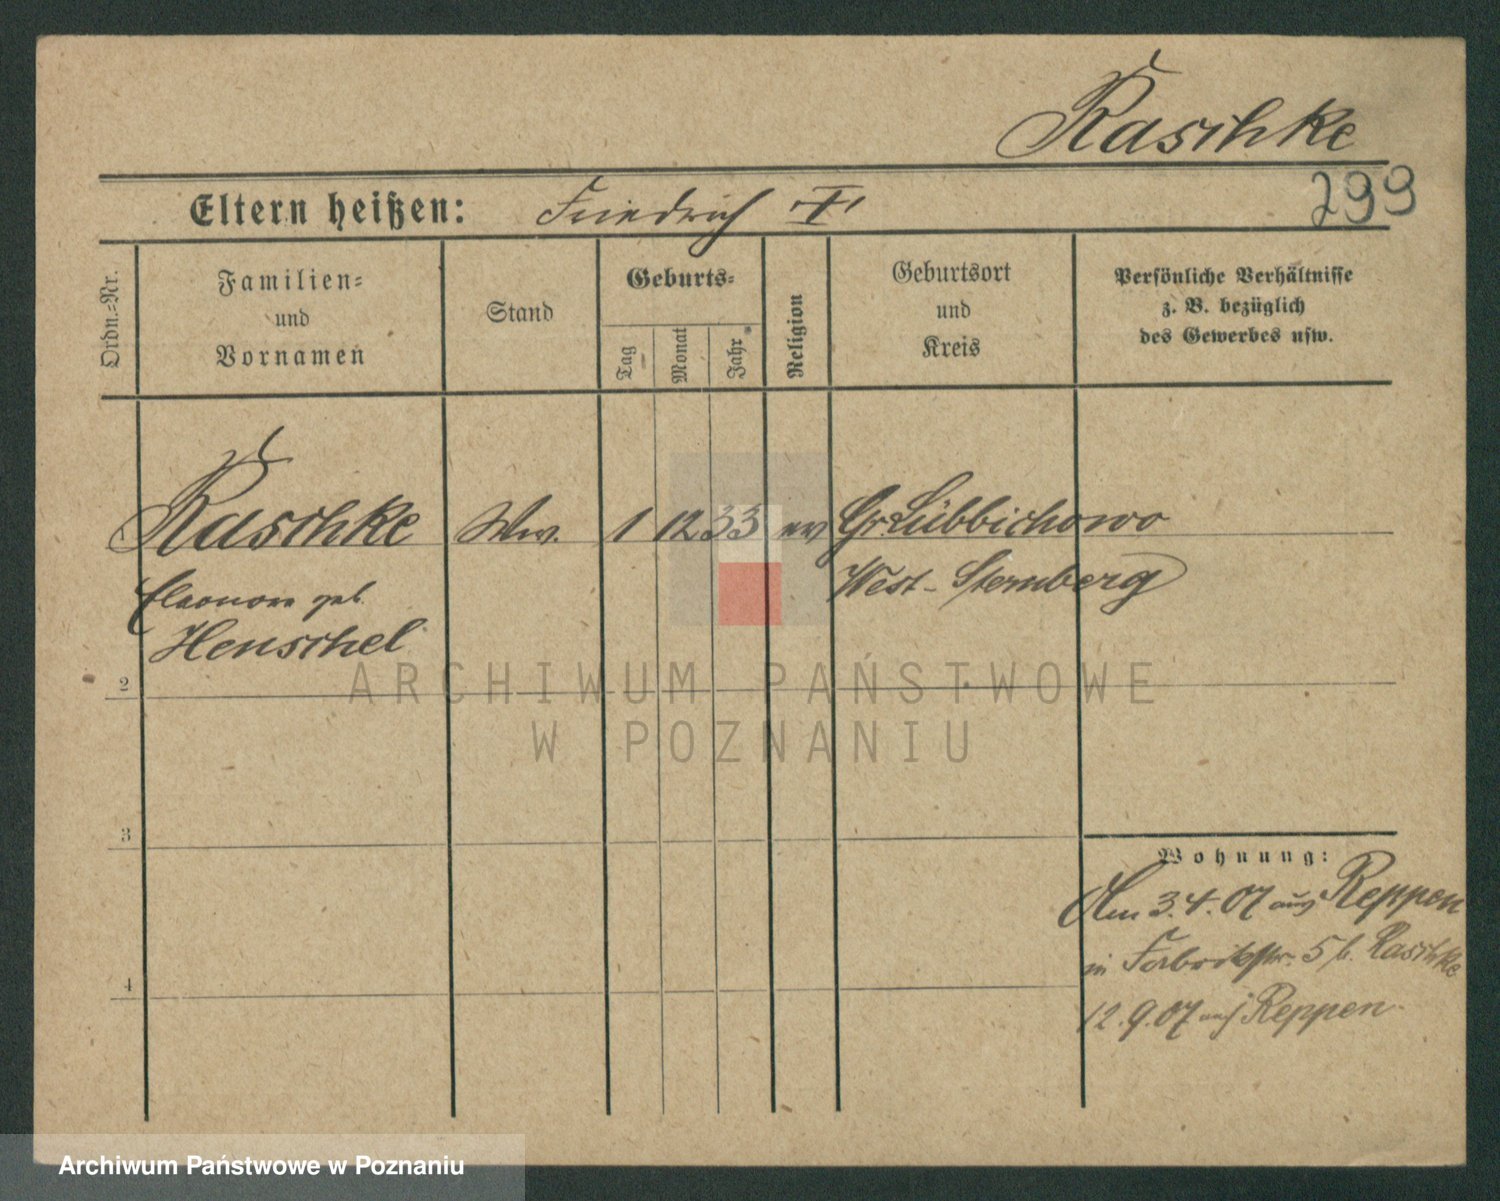 Raschke
299
Eltern heißen: Friedrich †
Ordn.-Nr.
Familien-
und
Vornamen
Stand
Geburts-
Tag
Monat
Jahr
Religion
Geburtsort
und
Kreis
Persönliche Verhältnisse
z. B. bezüglich
des Gewerbes usw.
1 Raschke Ww. 1 12 33 ev Gr. Lübbichowo
Eleonore geb. West-Sternberg
Henschel
2
3
4
Wohnung:
Am 3.4.07 aus Reppen
in Fabrikstr. 5 b. Raschke
12.9.07 auf Reppen.
ARCHIWUM PAŃSTWOWE
W POZNANIU
Archiwum Państwowe w Poznaniu